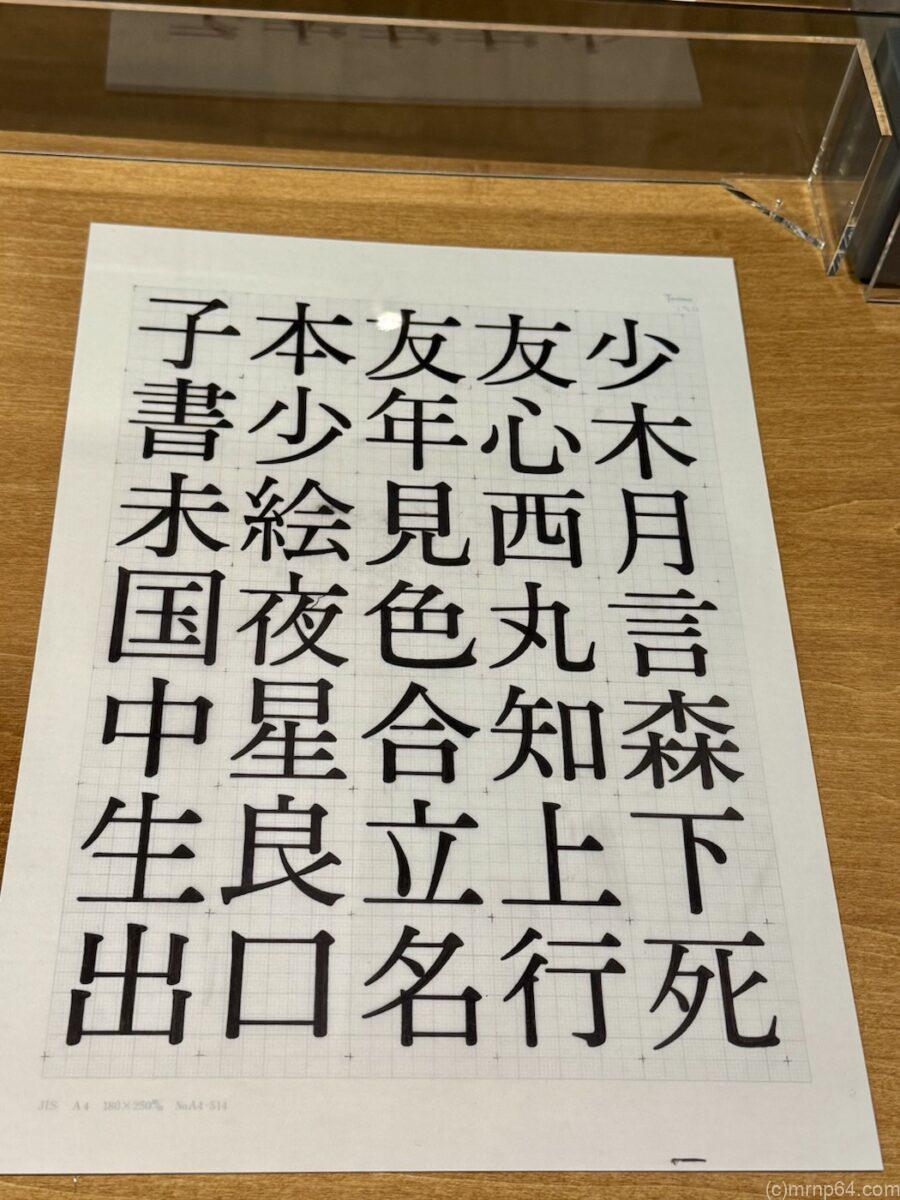 少木月言森下死
友心西丸知上行
友年見色合立名
本少絵夜星良口
子書未国中生出
JIS A4 180×250㎜ No.A4-514
(c)mrnp64.com